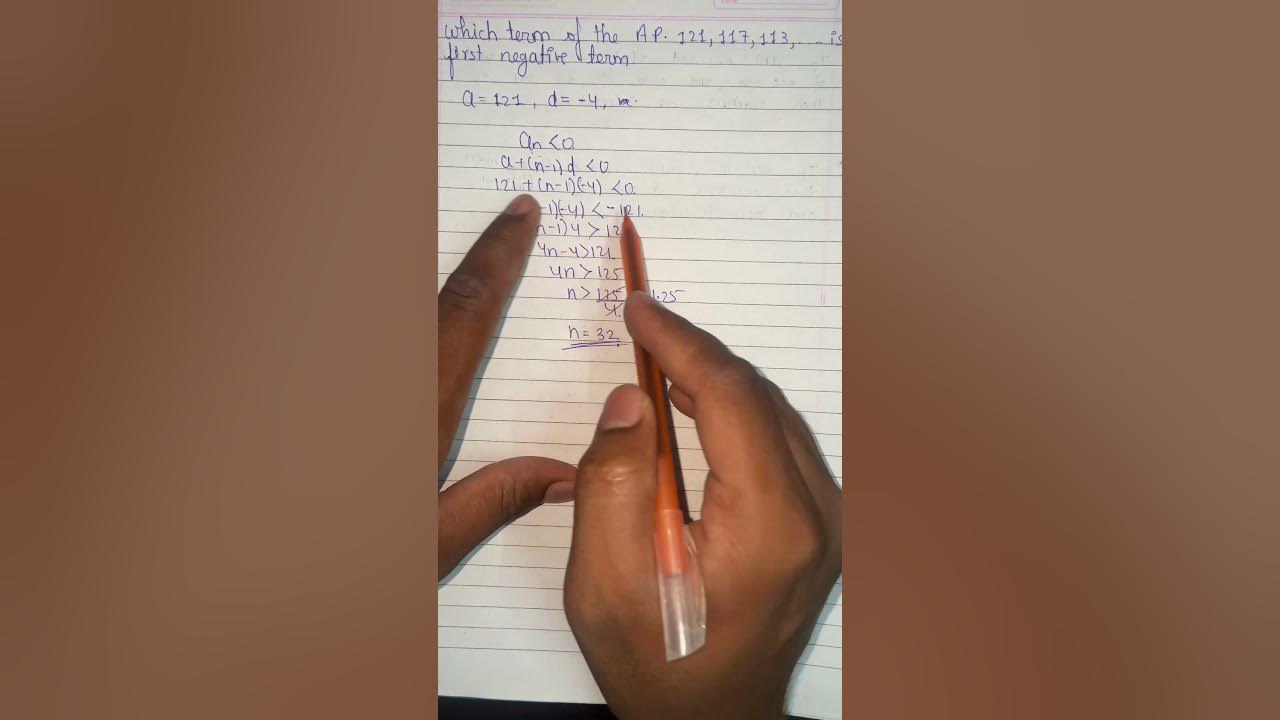 which term of the A.P. 121, 117, 113, ... is
first negative term.
a = 121, d = -4,
an < 0
a + (n-1)d < 0
121 + (n-1)(-4) < 0.
-1)(-4) < -121.
n-1)4 > 12
4n - 4 > 121
4n > 125
n > 125/4 1.25
n = 32